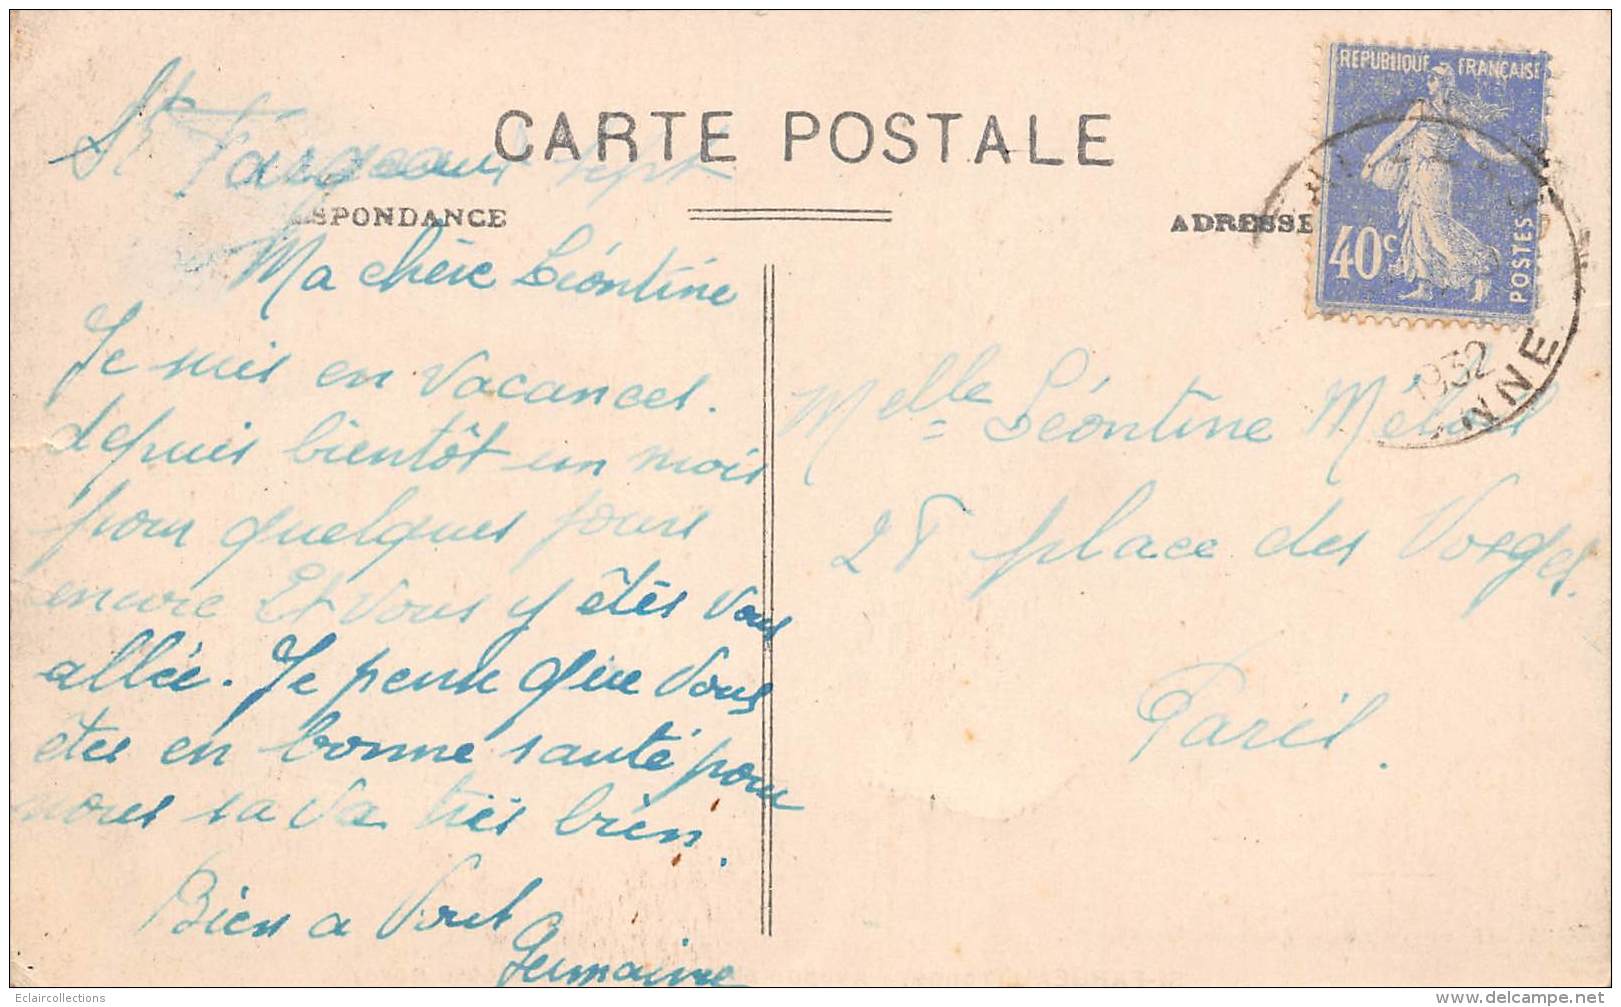 CARTE POSTALE
St Fargeau sept
SPONDANCE
ADRESSE
REPUBLIQUE FRANÇAISE
40c
POSTES
1932
NNE
Ma chère Léontine
Je suis en vacances.
depuis bientôt un mois
pour quelques jours
encore Et vous y êtês vous
allée. Je pense que vous
êtes en bonne santé pour
nous sa va très bien.
Bien a vous
Germaine
Melle Léontine
28 place des Vosges.
Paris.
Eclaircollections
www.delcampe.net